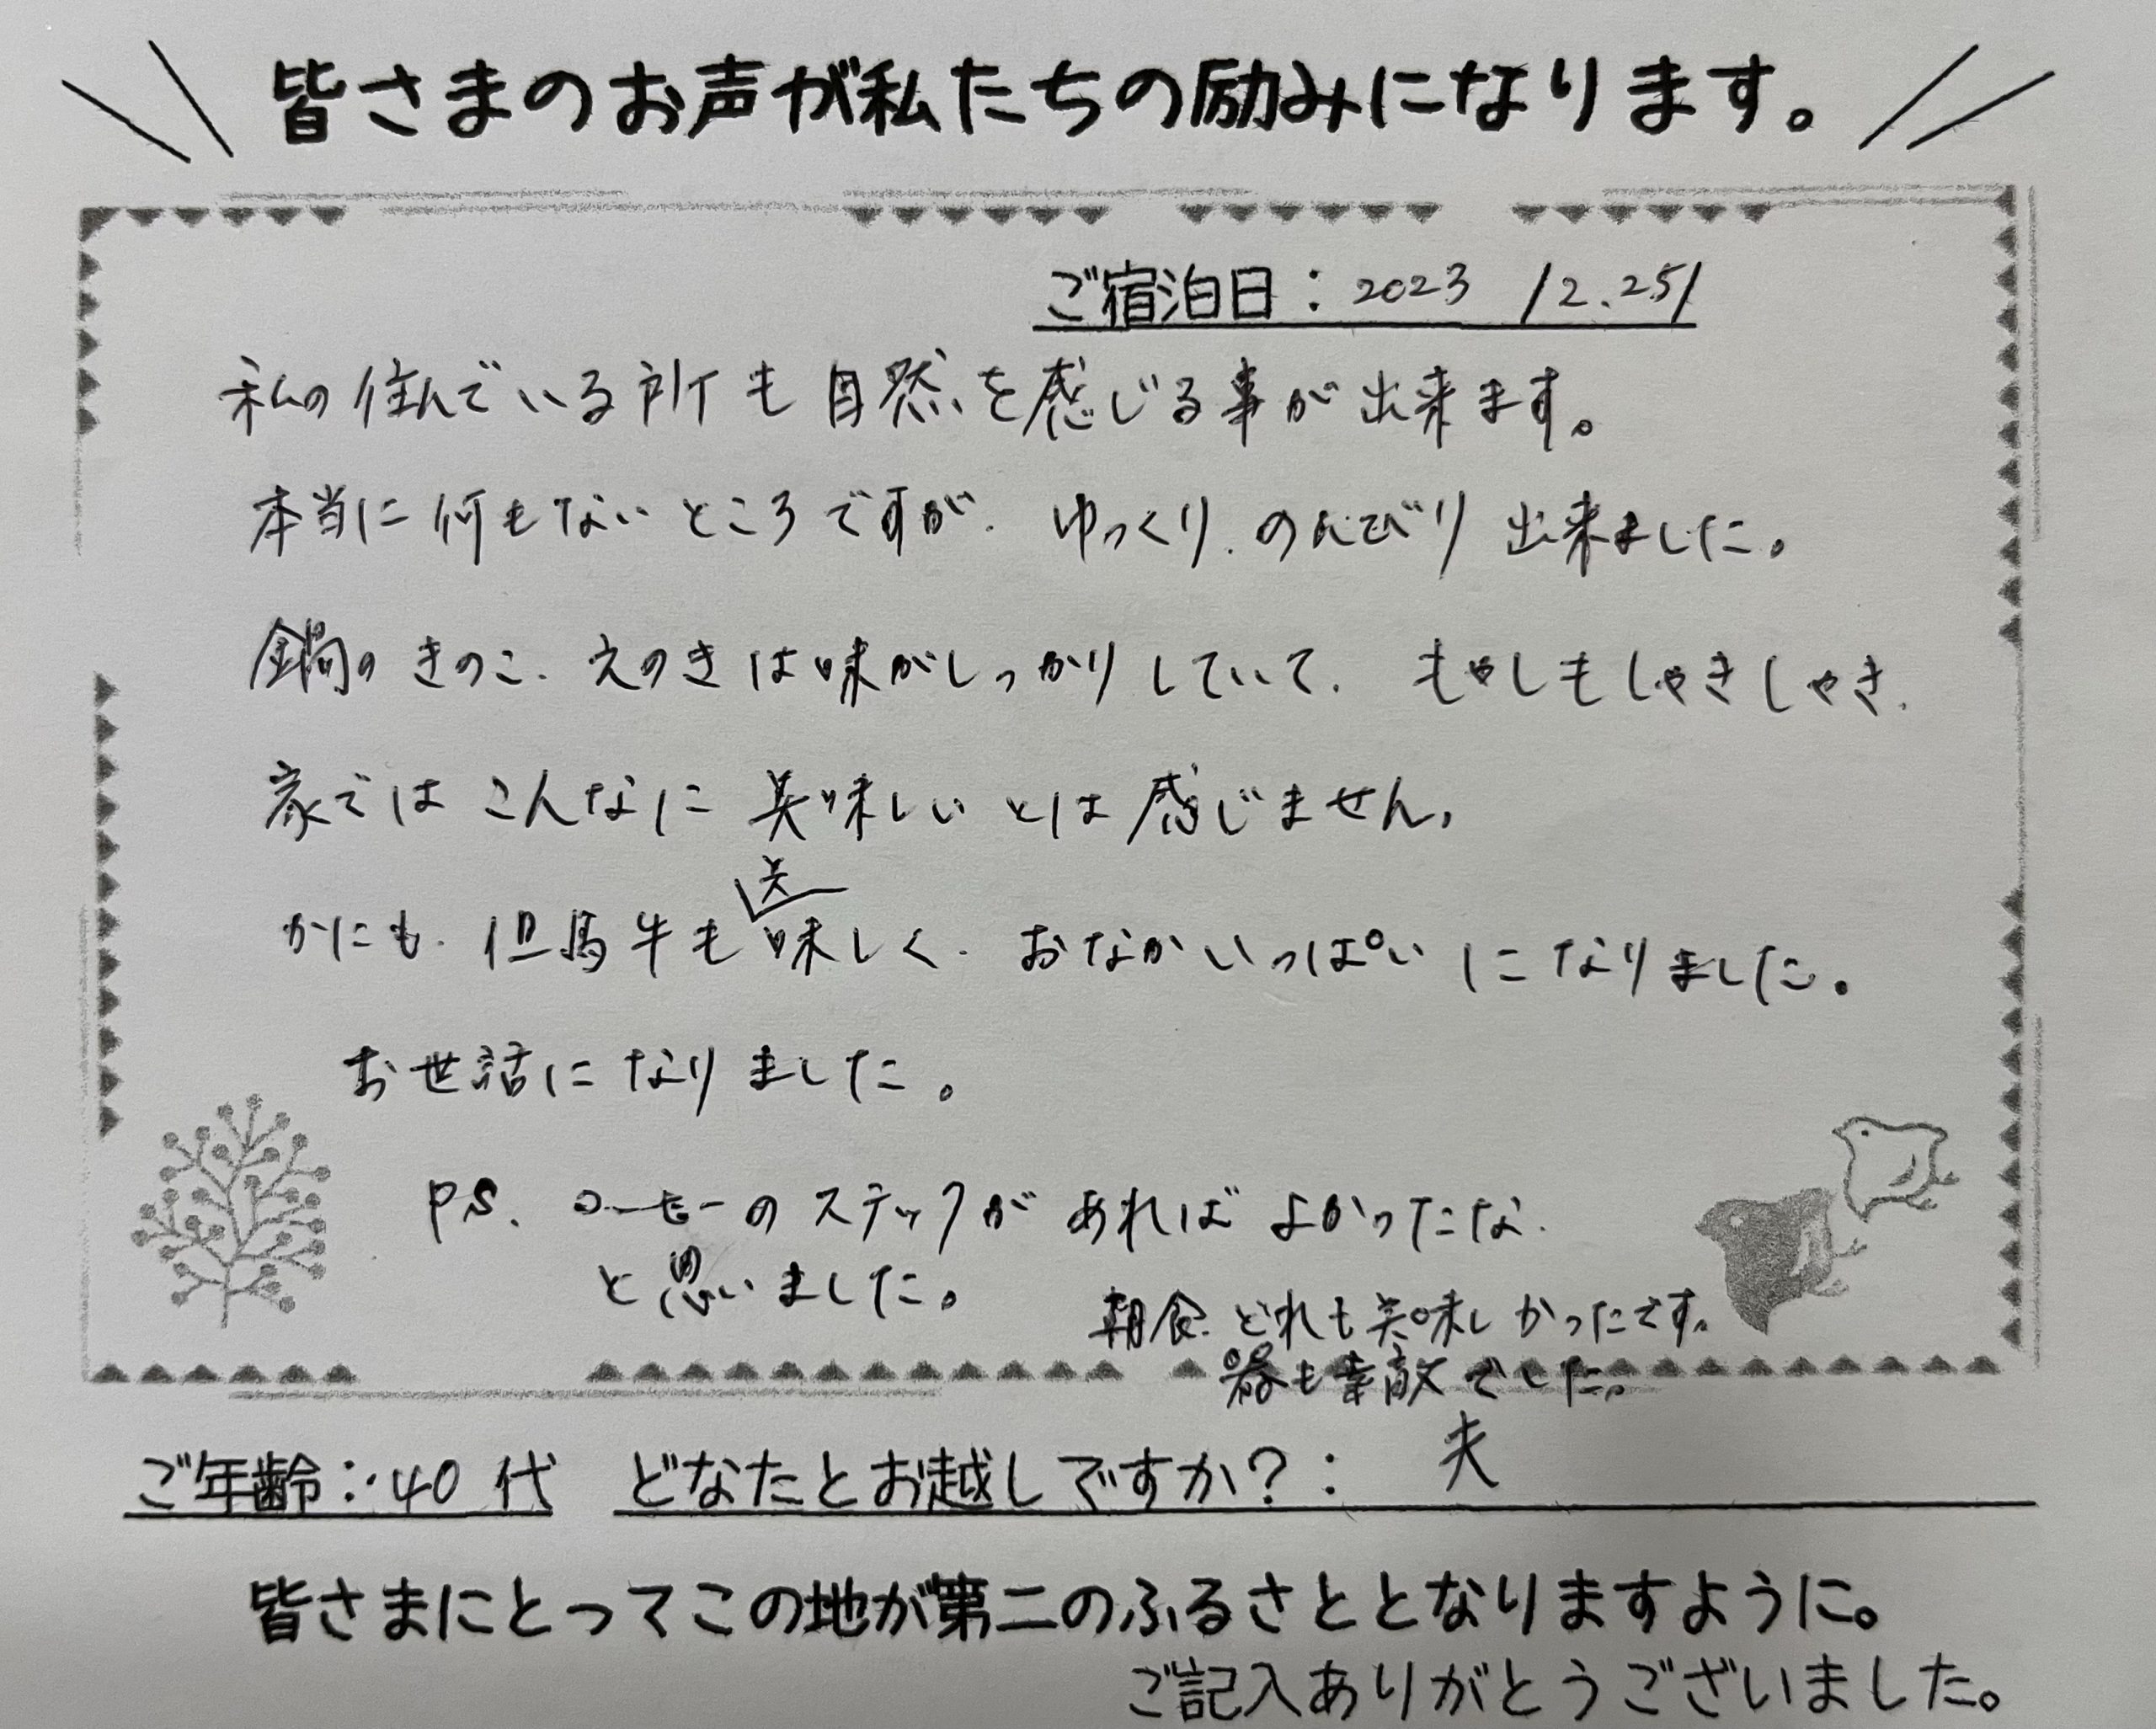 皆さまのお声が私たちの励みになります。
ご宿泊日：2023 12.25/
私の住んでいる所も自然を感じる事が出来ます。
本当に何もないところですが、ゆっくり、のんびり出来ました。
鍋のきのこ、えのきは味がしっかりしていて、もやしもしゃきしゃき、
家ではこんなに美味しいとは感じません。
かにも、但馬牛も美味しく、おなかいっぱいになりました。
お世話になりました。
P.S. コーヒーのスティックがあればよかったな、
と思いました。
朝食、どれも美味しかったです。
器も素敵でした。
ご年齢：40代 どなたとお越しですか？： 夫
皆さまにとってこの地が第二のふるさととなりますように。
ご記入ありがとうございました。